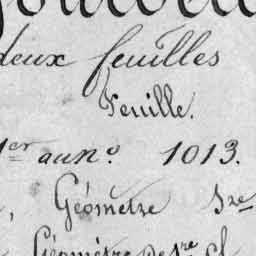 deux feuilles
Feuille.
1er au no. 1013.
, Géomètre
Géomètre de 1re cl